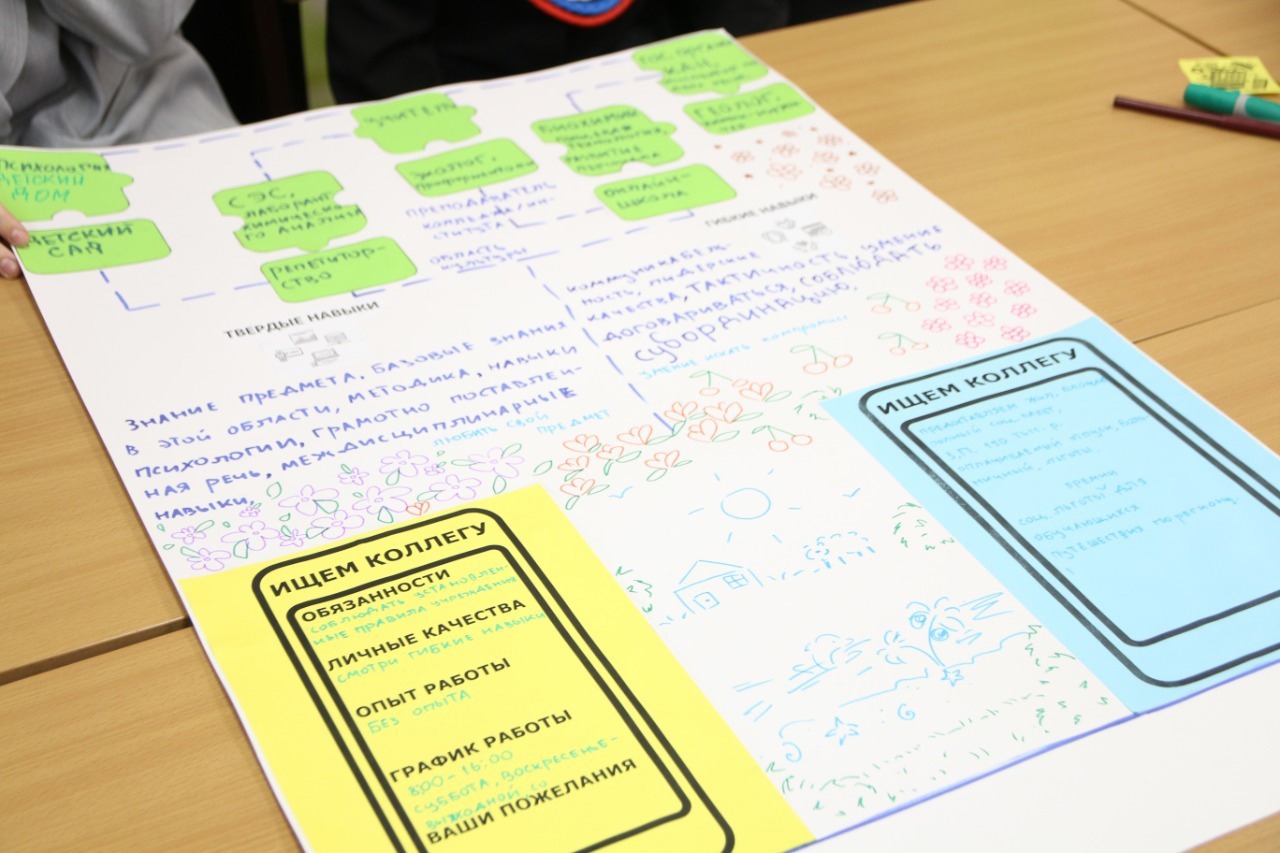 ПСИХОЛОГИЯ
ДЕТСКИЙ
ДОМ
ДЕТСКИЙ
САД
СЭС,
ЛАБОРАНТ
ХИМИЧЕСКО-
ГО АНАЛИЗА
РЕПЕТИТОР-
СТВО
УЧИТЕЛЬ
ЭКОЛОГ,
ПРЕПОДАВАТЕЛЬ
КОЛЛЕДЖА/ИН-
СТИТУТА
ОБЛАСТЬ
КУЛЬТУРЫ
БИОХИМИЯ
РАЗВИТИЕ
ОНЛАЙН-
ШКОЛА
ГЕОЛОГ,
ТВЕРДЫЕ НАВЫКИ
ЗНАНИЕ ПРЕДМЕТА, БАЗОВЫЕ ЗНАНИЯ
В ЭТОЙ ОБЛАСТИ, МЕТОДИКА, НАВЫКИ
ПСИХОЛОГИИ, ГРАМОТНО ПОСТАВЛЕН-
НАЯ РЕЧЬ, МЕЖДИСЦИПЛИНАРНЫЕ
НАВЫКИ,
ЛЮБИТЬ СВОЙ
ПРЕДМЕТ
ГИБКИЕ НАВЫКИ
КОММУНИКАБЕЛЬ-
НОСТЬ, ЛИДЕРСКИЕ
КАЧЕСТВА, ТАКТИЧНОСТЬ, УМЕНИЕ
ДОГОВАРИВАТЬСЯ, СОБЛЮДАТЬ
СУБОРДИНАЦИЮ,
УМЕНИЕ ИСКАТЬ КОМПРОМИСС
ИЩЕМ КОЛЛЕГУ
ОБЯЗАННОСТИ
СОБЛЮДАТЬ УСТАНОВЛЕН-
НЫЕ ПРАВИЛА УЧРЕЖДЕНИЯ
ЛИЧНЫЕ КАЧЕСТВА
СМОТРИ ГИБКИЕ НАВЫКИ
ОПЫТ РАБОТЫ
БЕЗ ОПЫТА
ГРАФИК РАБОТЫ
8:00-16:00
СУББОТА, ВОСКРЕСЕНЬЕ-
ВЫХОДНОЙ
ВАШИ ПОЖЕЛАНИЯ
ИЩЕМ КОЛЛЕГУ
ПОЛНЫЙ СОЦ. ПАКЕТ,
З.П.
ОПЛАЧИВАЕМЫЙ ОТПУСК,
НИЧНЫЙ, ЛЬГОТЫ,
ПРЕМИИ
СОЦ. ЛЬГОТЫ ДЛЯ
ОБУЧАЮЩИХСЯ
ПУТЕШЕСТВИЯ ПО РЕГИОНУ